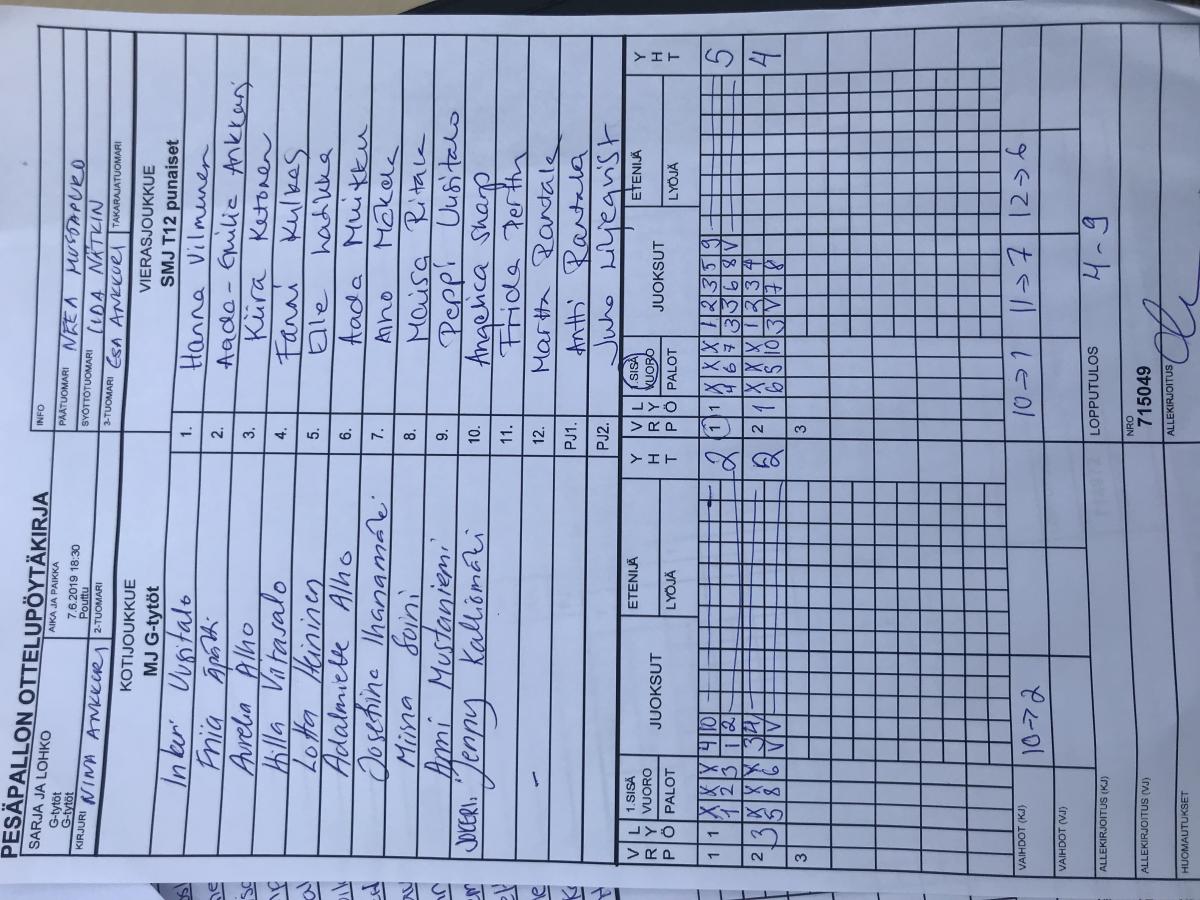 PESÄPALLON OTTELUPÖYTÄKIRJA
SARJA JA LOHKO
G-tytöt
G-tytöt
AIKA JA PAIKKA
7.6.2019 18:30
Pouttu
INFO
PÄÄTUOMARI NEEA MUSTAPURO
SYÖTTÖTUOMARI IIDA NÄTKIN
KIRJURI NINA ANKKURI
2-TUOMARI
3-TUOMARI ESA ANKKURI
TAKARAJATUOMARI
KOTIJOUKKUE
MJ G-tytöt
VIERASJOUKKUE
SMJ T12 punaiset
Inkeri Uusitalo 1. Hanna Vilmunen
Friia 2. Aada-Emilia Ankkuri
Aurelia Alho 3. Kiira Ketonen
Hilla Viitasalo 4. Fanni Kulkas
Lotta Akininen 5. Elle
Adalmielle Alho 6. Aada Muikku
Josefiina Ihanamäki 7. Aino Mäkelä
Miina Soini 8. Maisa Ritala
Anni Mustaniemi 9. Peppi Uusitalo
JOKERI: Jenny Kalliomäki 10. Angelica Sharp
11. Frida Perttu
- 12. Martta Rantala
PJ1. Antti Rantala
PJ2. Juho Liljeqvist
V R P L Y Ö 1.SISÄ VUORO PALOT JUOKSUT ETENIJÄ LYÖJÄ Y H T
V R P L Y Ö 1.SISÄ VUORO PALOT JUOKSUT ETENIJÄ LYÖJÄ Y H T
1 1 X X X 4 10 2
1 2 3 1 2
1 1 X X X 1 2 3 5 9 5
4 6 7 3 3 6 8 V
2 3 X X X 3 4 2
5 8 6 V V
2 1 X X X 1 2 3 4 4
6 5 10 3 V 7 8
3
3
VAIHDOT (KJ) 10→2 10→1 11→7 12→6
VAIHDOT (VJ)
ALLEKIRJOITUS (KJ)
LOPPUTULOS 4-9
ALLEKIRJOITUS (VJ)
NRO
715049
HUOMAUTUKSET
ALLEKIRJOITUS